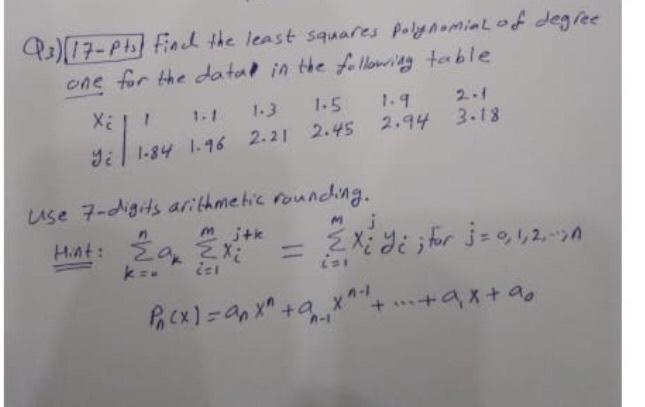 Q3) [17-Pts] Find the least squares Polynomial of degree
one for the data in the following table
xi | 1 1.1 1.3 1.5 1.9 2.1
yi | 1.84 1.96 2.21 2.45 2.94 3.18
Use 7-digits arithmetic rounding.
Hint: \sum_{k=0}^{n} a_k \sum_{i=1}^{m} x_i^{j+k} = \sum_{i=1}^{m} x_i^j y_i ; for j=0,1,2,...,n
P_n(x) = a_n x^n + a_{n-1} x^{n-1} + ... + a_1 x + a_0